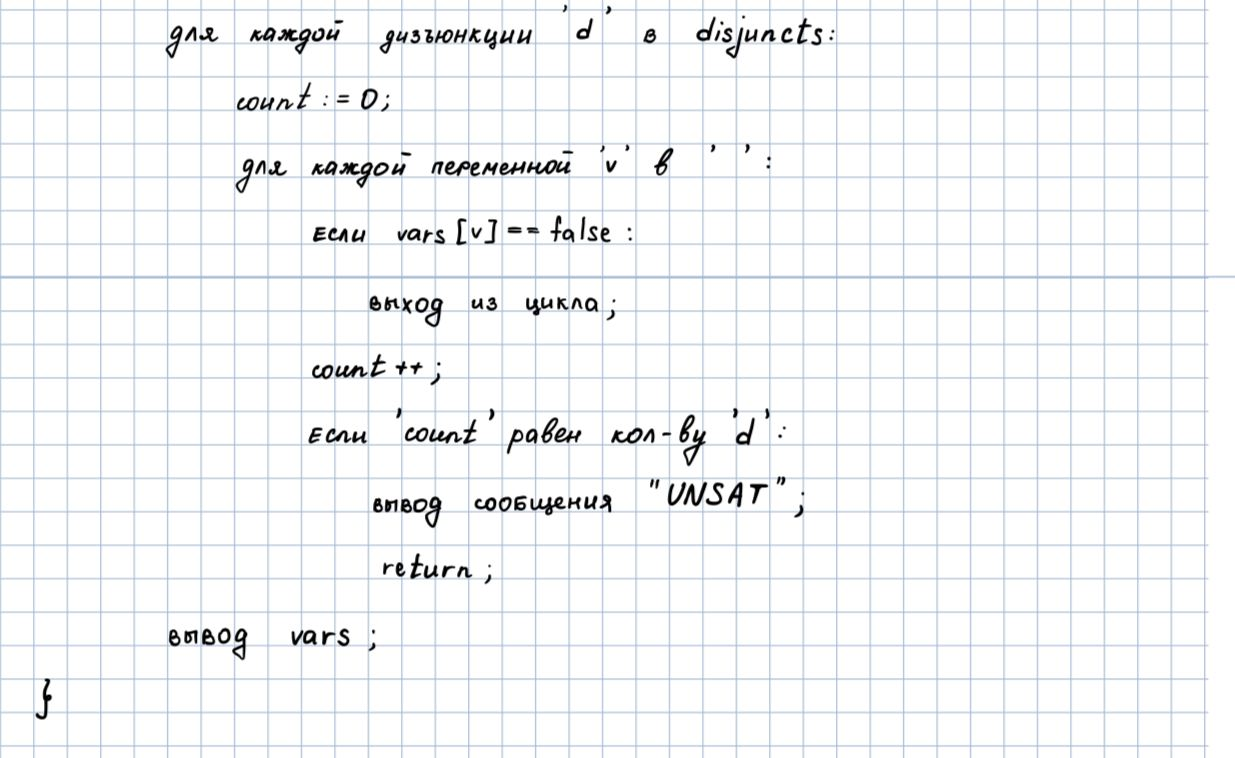 для каждой дизъюнкции 'd' в disjuncts:
count := 0;
для каждой переменной 'v' в ' ':
Если vars [v] == false :
выход из цикла;
count ++;
Если 'count' равен кол-ву 'd':
вывод сообщения "UNSAT";
return;
вывод vars;
}